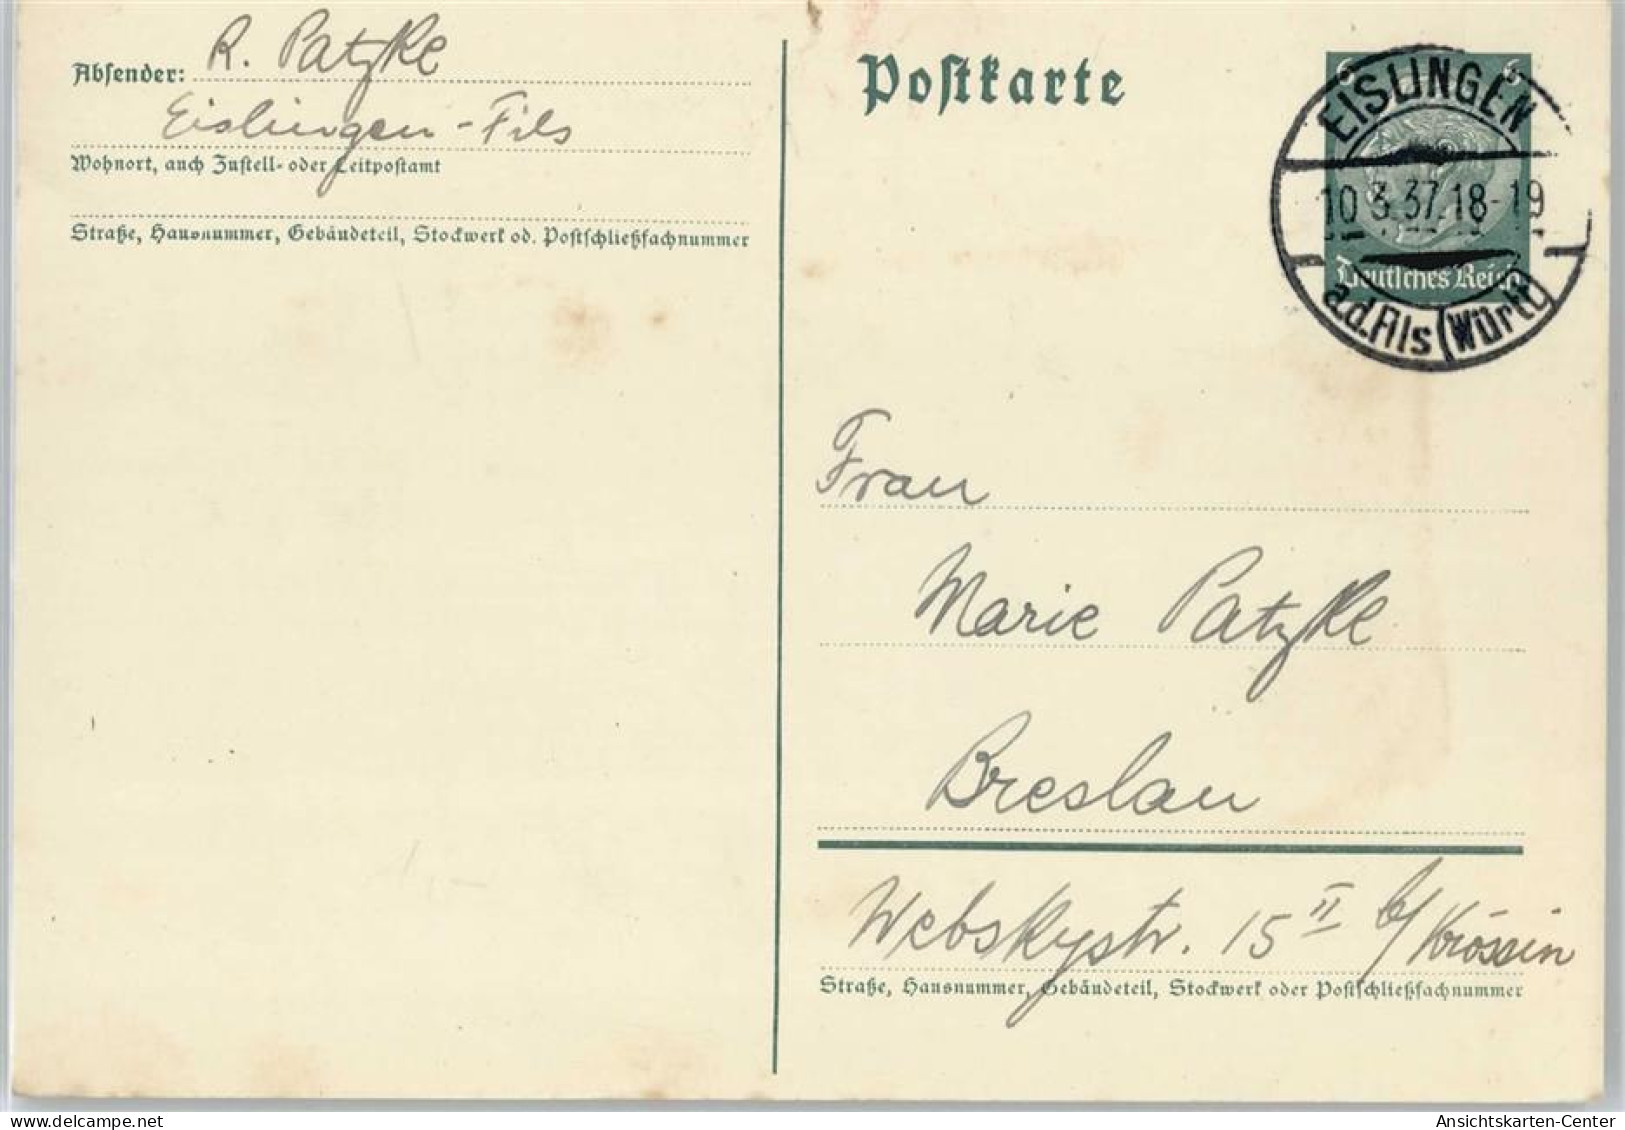 Absender: R. Patzke
Eislingen - Fils
Wohnort, auch Zustell- oder Leitpostamt
Straße, Hausnummer, Gebäudeteil, Stockwerk od. Postschließfachnummer
Postkarte
6 6
EISLINGEN
10.3.37.18-19
a.d.Fils (Württ)
Deutsches Reich
Frau
Marie Patzke
Breslau
Webskystr. 15 II b/Krössin
Straße, Hausnummer, Gebäudeteil, Stockwerk oder Postschließfachnummer
delcampe.net
Ansichtskarten-Center